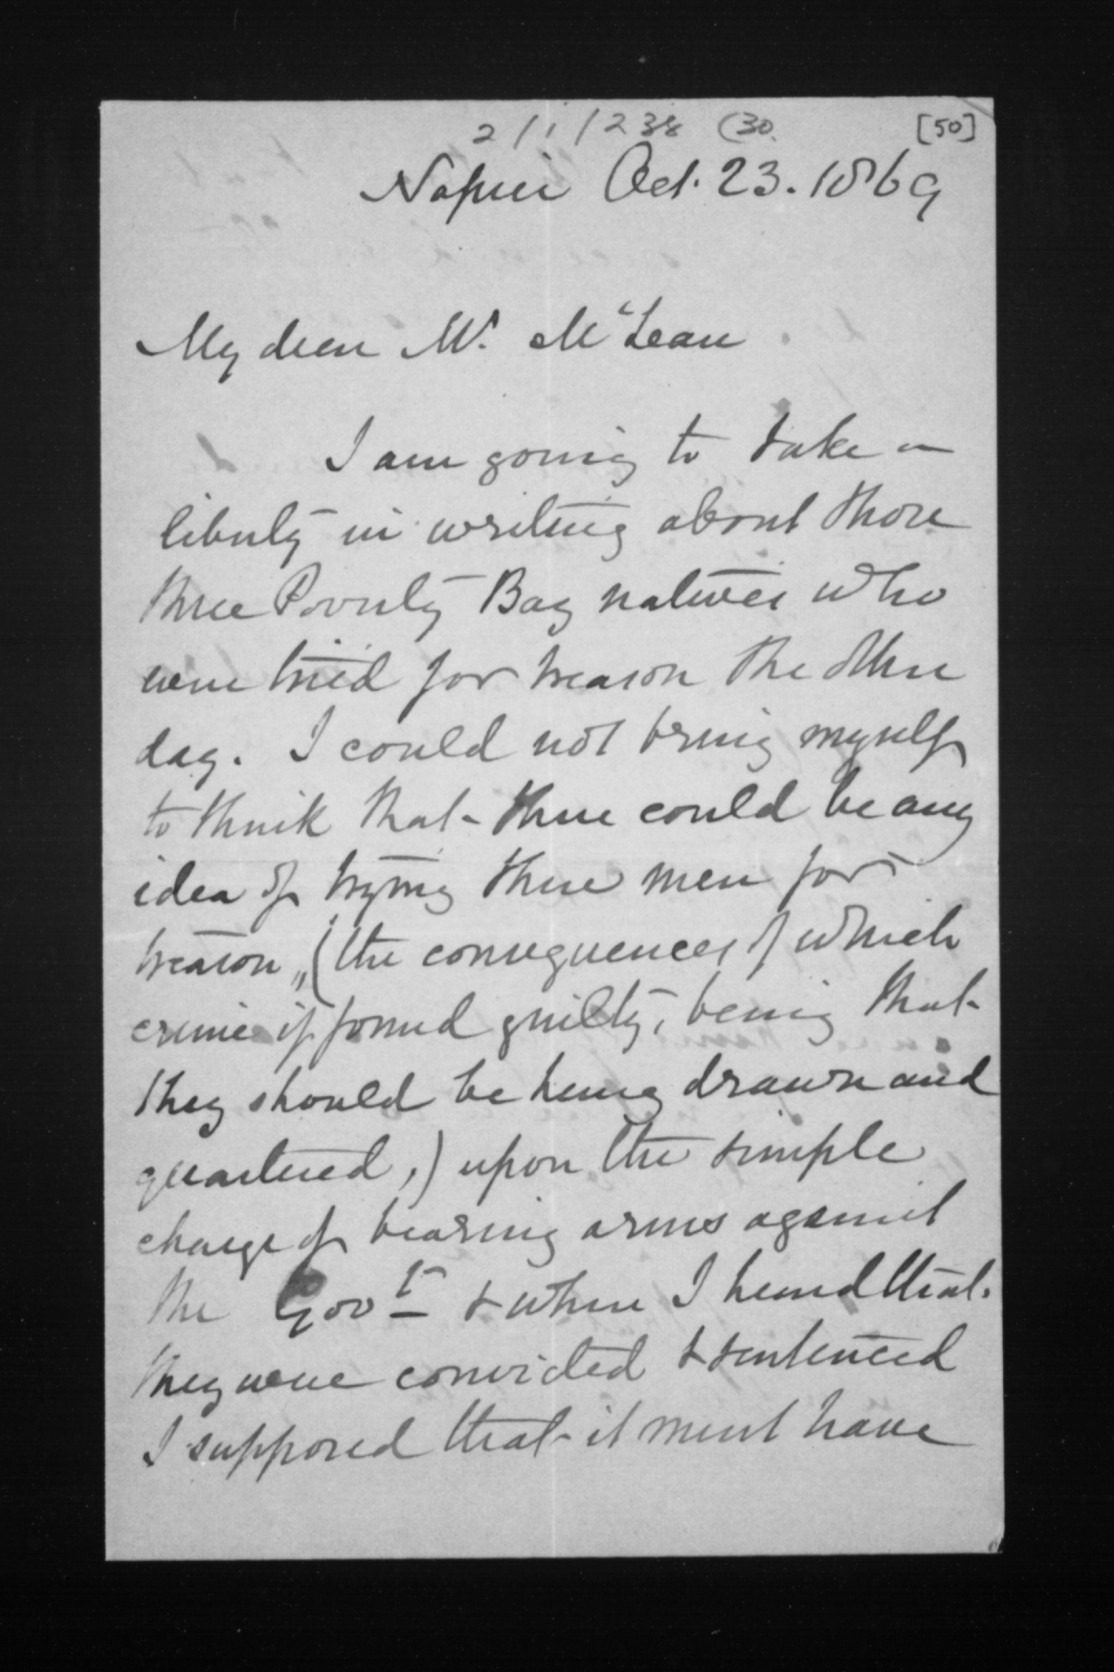 2/1/238 (30.
[50]
Napier Oct. 23. 1869
My dear Mr. McLean
I am going to take a
liberty in writing about those
three Poverty Bay natives who
were tried for treason the other
day. I could not bring myself
to think that there could be any
idea of trying these men for
treason, (the consequences of which
crime if found guilty, being that
they should be hung drawn and
quartered,) upon the simple
charge of bearing arms against
the Govt & when I heard that
they were convicted & sentenced
I supposed that it must have